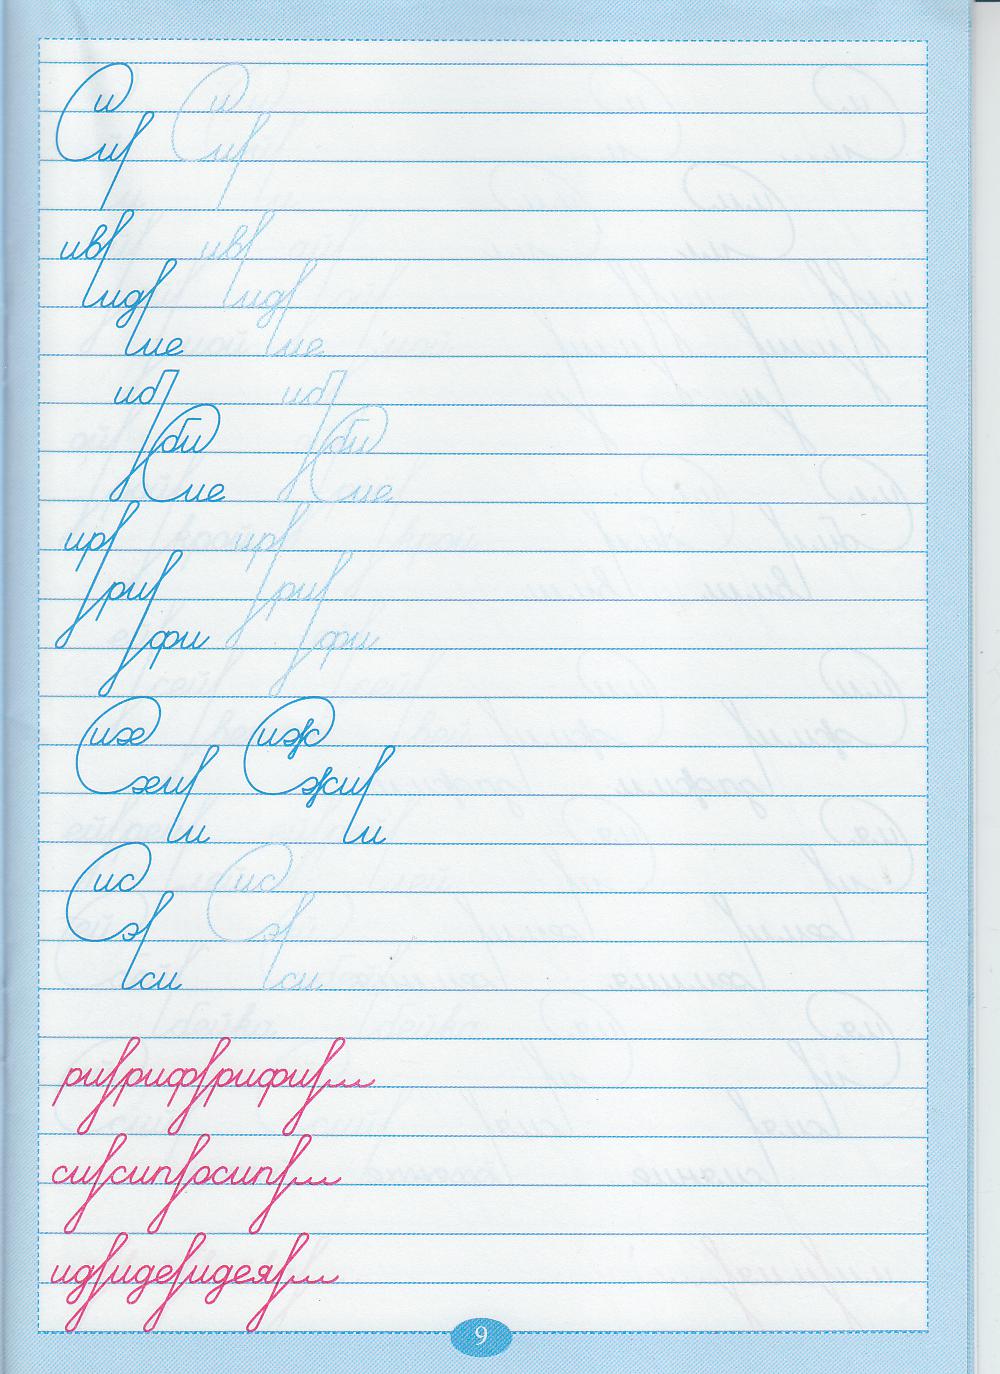 и и
и и
ив ив
ид ид
ие ие
иб иб
би би
ие ие
ир ир
ри ри
фи фи
их иж
хи жи
и и
ис ис
э э
си си
ри риф рифи
си сип осип
ид иде идея
9